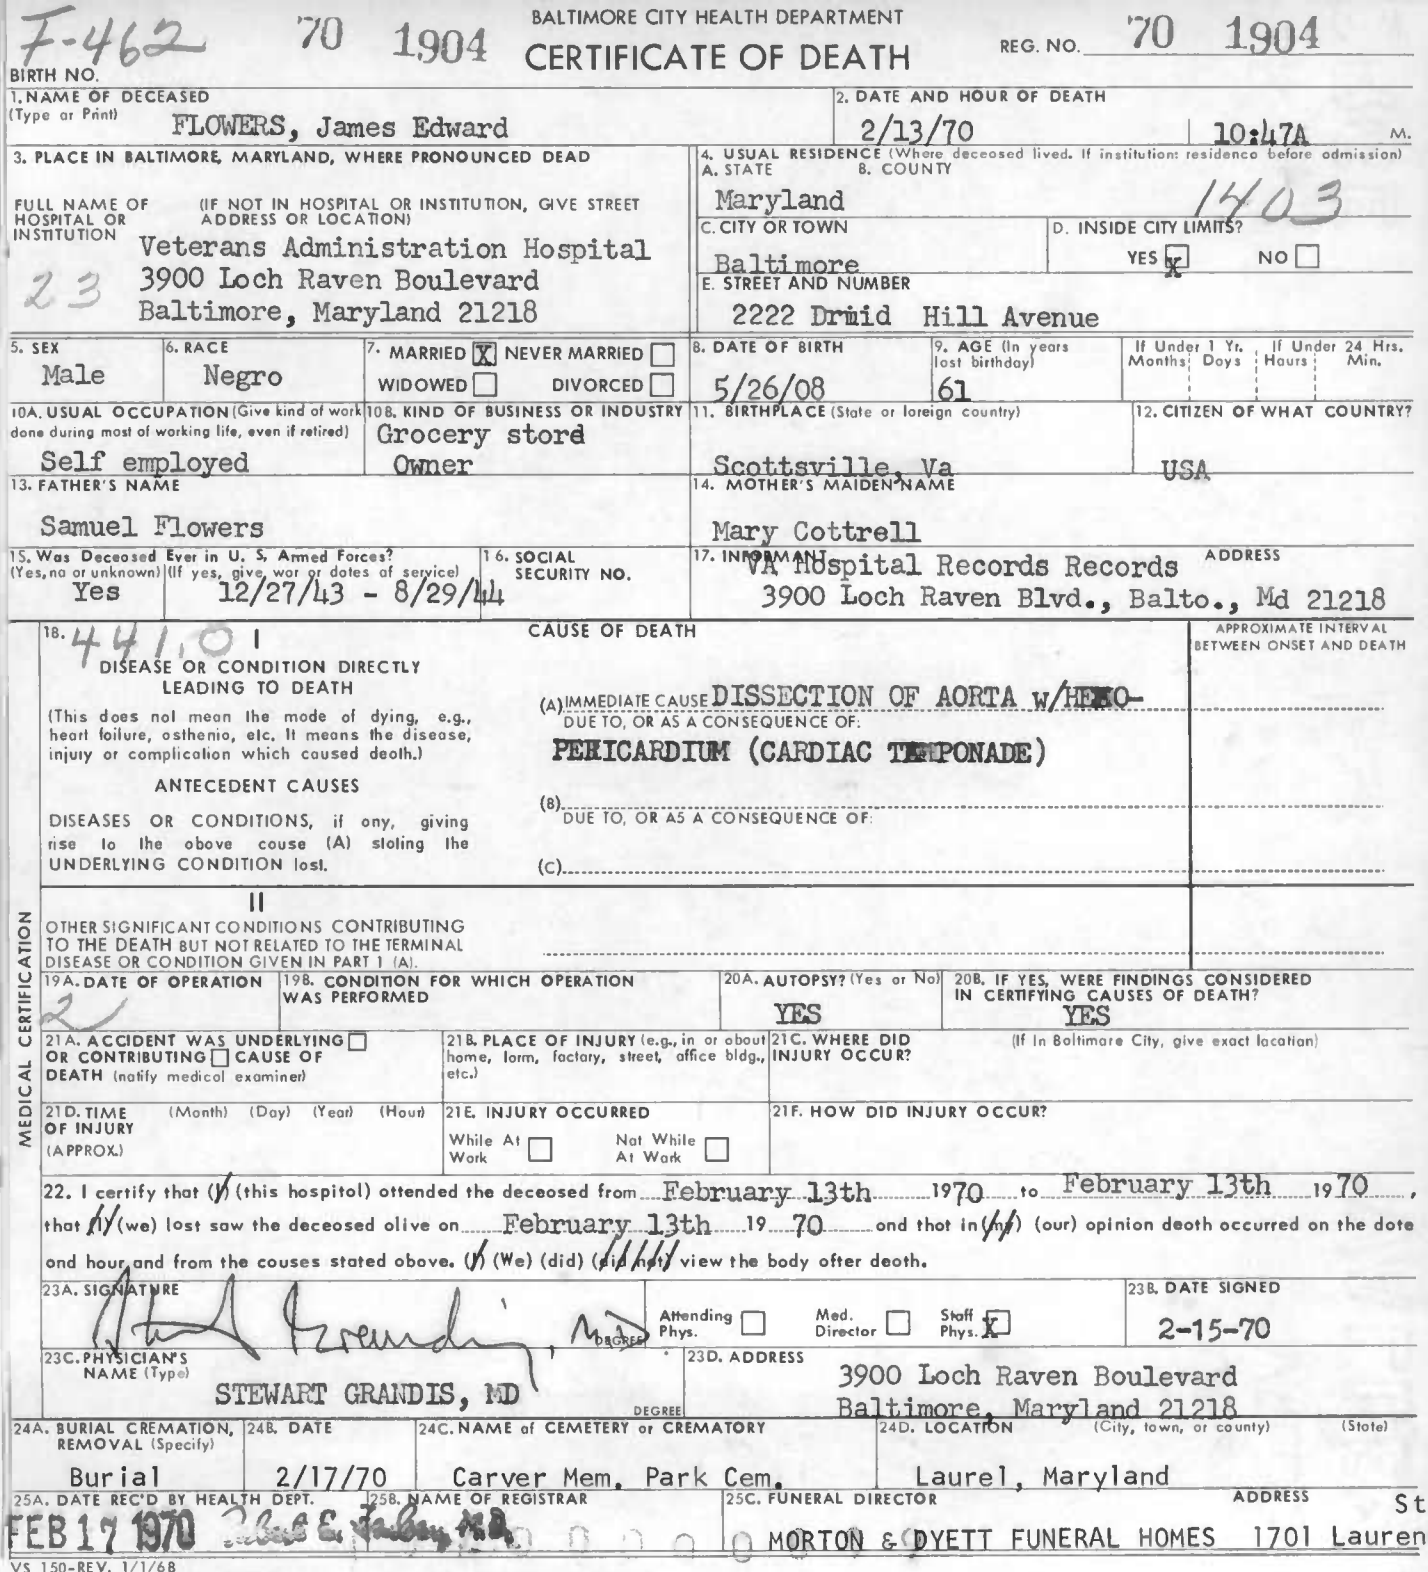 F-462 70 1904 BALTIMORE CITY HEALTH DEPARTMENT
CERTIFICATE OF DEATH REG. NO. 70 1904
BIRTH NO.
1. NAME OF DECEASED
(Type or Print) FLOWERS, James Edward
2. DATE AND HOUR OF DEATH
2/13/70 10:47A M.
3. PLACE IN BALTIMORE, MARYLAND, WHERE PRONOUNCED DEAD
FULL NAME OF HOSPITAL OR INSTITUTION (IF NOT IN HOSPITAL OR INSTITUTION, GIVE STREET ADDRESS OR LOCATION)
Veterans Administration Hospital
23 3900 Loch Raven Boulevard
Baltimore, Maryland 21218
4. USUAL RESIDENCE (Where deceased lived. If institution: residence before admission)
A. STATE B. COUNTY
Maryland 1403
C. CITY OR TOWN D. INSIDE CITY LIMITS?
Baltimore YES X NO
E. STREET AND NUMBER
2222 Druid Hill Avenue
5. SEX
Male
6. RACE
Negro
7. MARRIED X NEVER MARRIED
WIDOWED DIVORCED
8. DATE OF BIRTH
5/26/08
9. AGE (In years last birthday)
61
If Under 1 Yr. If Under 24 Hrs.
Months Days Hours Min.
10A. USUAL OCCUPATION (Give kind of work done during most of working life, even if retired)
Self employed
10B. KIND OF BUSINESS OR INDUSTRY
Grocery stord
Owner
11. BIRTHPLACE (State or foreign country)
Scottsville, Va
12. CITIZEN OF WHAT COUNTRY?
USA
13. FATHER'S NAME
Samuel Flowers
14. MOTHER'S MAIDEN NAME
Mary Cottrell
15. Was Deceased Ever in U. S. Armed Forces?
(Yes, no or unknown) (If yes, give war or dates of service)
Yes 12/27/43 - 8/29/44
16. SOCIAL SECURITY NO.
17. INFORMANT ADDRESS
VA Hospital Records Records
3900 Loch Raven Blvd., Balto., Md 21218
18. 441.0 I
CAUSE OF DEATH
APPROXIMATE INTERVAL
BETWEEN ONSET AND DEATH
DISEASE OR CONDITION DIRECTLY
LEADING TO DEATH
(This does not mean the mode of dying, e.g.,
heart failure, asthenia, etc. It means the disease,
injury or complication which caused death.)
ANTECEDENT CAUSES
DISEASES OR CONDITIONS, if any, giving
rise to the above cause (A) stating the
UNDERLYING CONDITION last.
(A) IMMEDIATE CAUSE DISSECTION OF AORTA w/HEMO-
DUE TO, OR AS A CONSEQUENCE OF:
PERICARDIUM (CARDIAC TAMPONADE)
(B)
DUE TO, OR AS A CONSEQUENCE OF:
(C)
MEDICAL CERTIFICATION
II
OTHER SIGNIFICANT CONDITIONS CONTRIBUTING
TO THE DEATH BUT NOT RELATED TO THE TERMINAL
DISEASE OR CONDITION GIVEN IN PART 1 (A).
19A. DATE OF OPERATION
2
19B. CONDITION FOR WHICH OPERATION
WAS PERFORMED
20A. AUTOPSY? (Yes or No)
YES
20B. IF YES, WERE FINDINGS CONSIDERED
IN CERTIFYING CAUSES OF DEATH?
YES
21A. ACCIDENT WAS UNDERLYING
OR CONTRIBUTING CAUSE OF
DEATH (notify medical examiner)
21B. PLACE OF INJURY (e.g., in or about
home, farm, factory, street, office bldg.,
etc.)
21C. WHERE DID (If In Baltimore City, give exact location)
INJURY OCCUR?
21D. TIME (Month) (Day) (Year) (Hour)
OF INJURY
(APPROX.)
21E. INJURY OCCURRED
While At Work Not While At Work
21F. HOW DID INJURY OCCUR?
22. I certify that (I) (this hospital) attended the deceased from February 13th 1970 to February 13th 1970,
that (I) (we) last saw the deceased alive on February 13th 19 70 and that in (my) (our) opinion death occurred on the date
and hour and from the causes stated above. (I) (We) (did) (did not) view the body after death.
23A. SIGNATURE
Stewart Grandis, MD
DEGREE
Attending Phys. Med. Director Staff Phys. X
23B. DATE SIGNED
2-15-70
23C. PHYSICIAN'S
NAME (Type)
STEWART GRANDIS, MD
DEGREE
23D. ADDRESS
3900 Loch Raven Boulevard
Baltimore, Maryland 21218
24A. BURIAL CREMATION,
REMOVAL (Specify)
Burial
24B. DATE
2/17/70
24C. NAME of CEMETERY or CREMATORY
Carver Mem. Park Cem.
24D. LOCATION (City, town, or county) (State)
Laurel, Maryland
25A. DATE REC'D BY HEALTH DEPT.
FEB 17 1970
25B. NAME OF REGISTRAR
Robert E. Farber, M.D.
25C. FUNERAL DIRECTOR ADDRESS St
MORTON & DYETT FUNERAL HOMES 1701 Lauren
VS 150-REV. 1/1/68